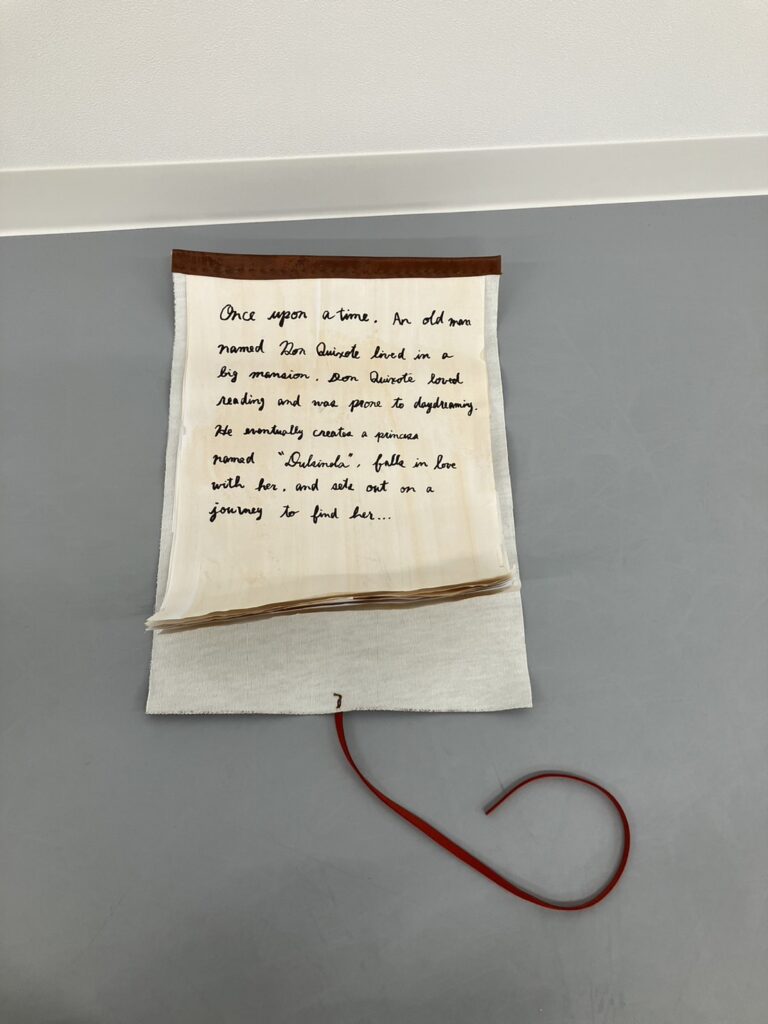 Once upon a time. An old man
named Don Quixote lived in a
big mansion. Don Quixote loved
reading and was prone to daydreaming.
He eventually creates a princess
named "Dulsinda", falls in love
with her, and sets out on a
journey to find her...